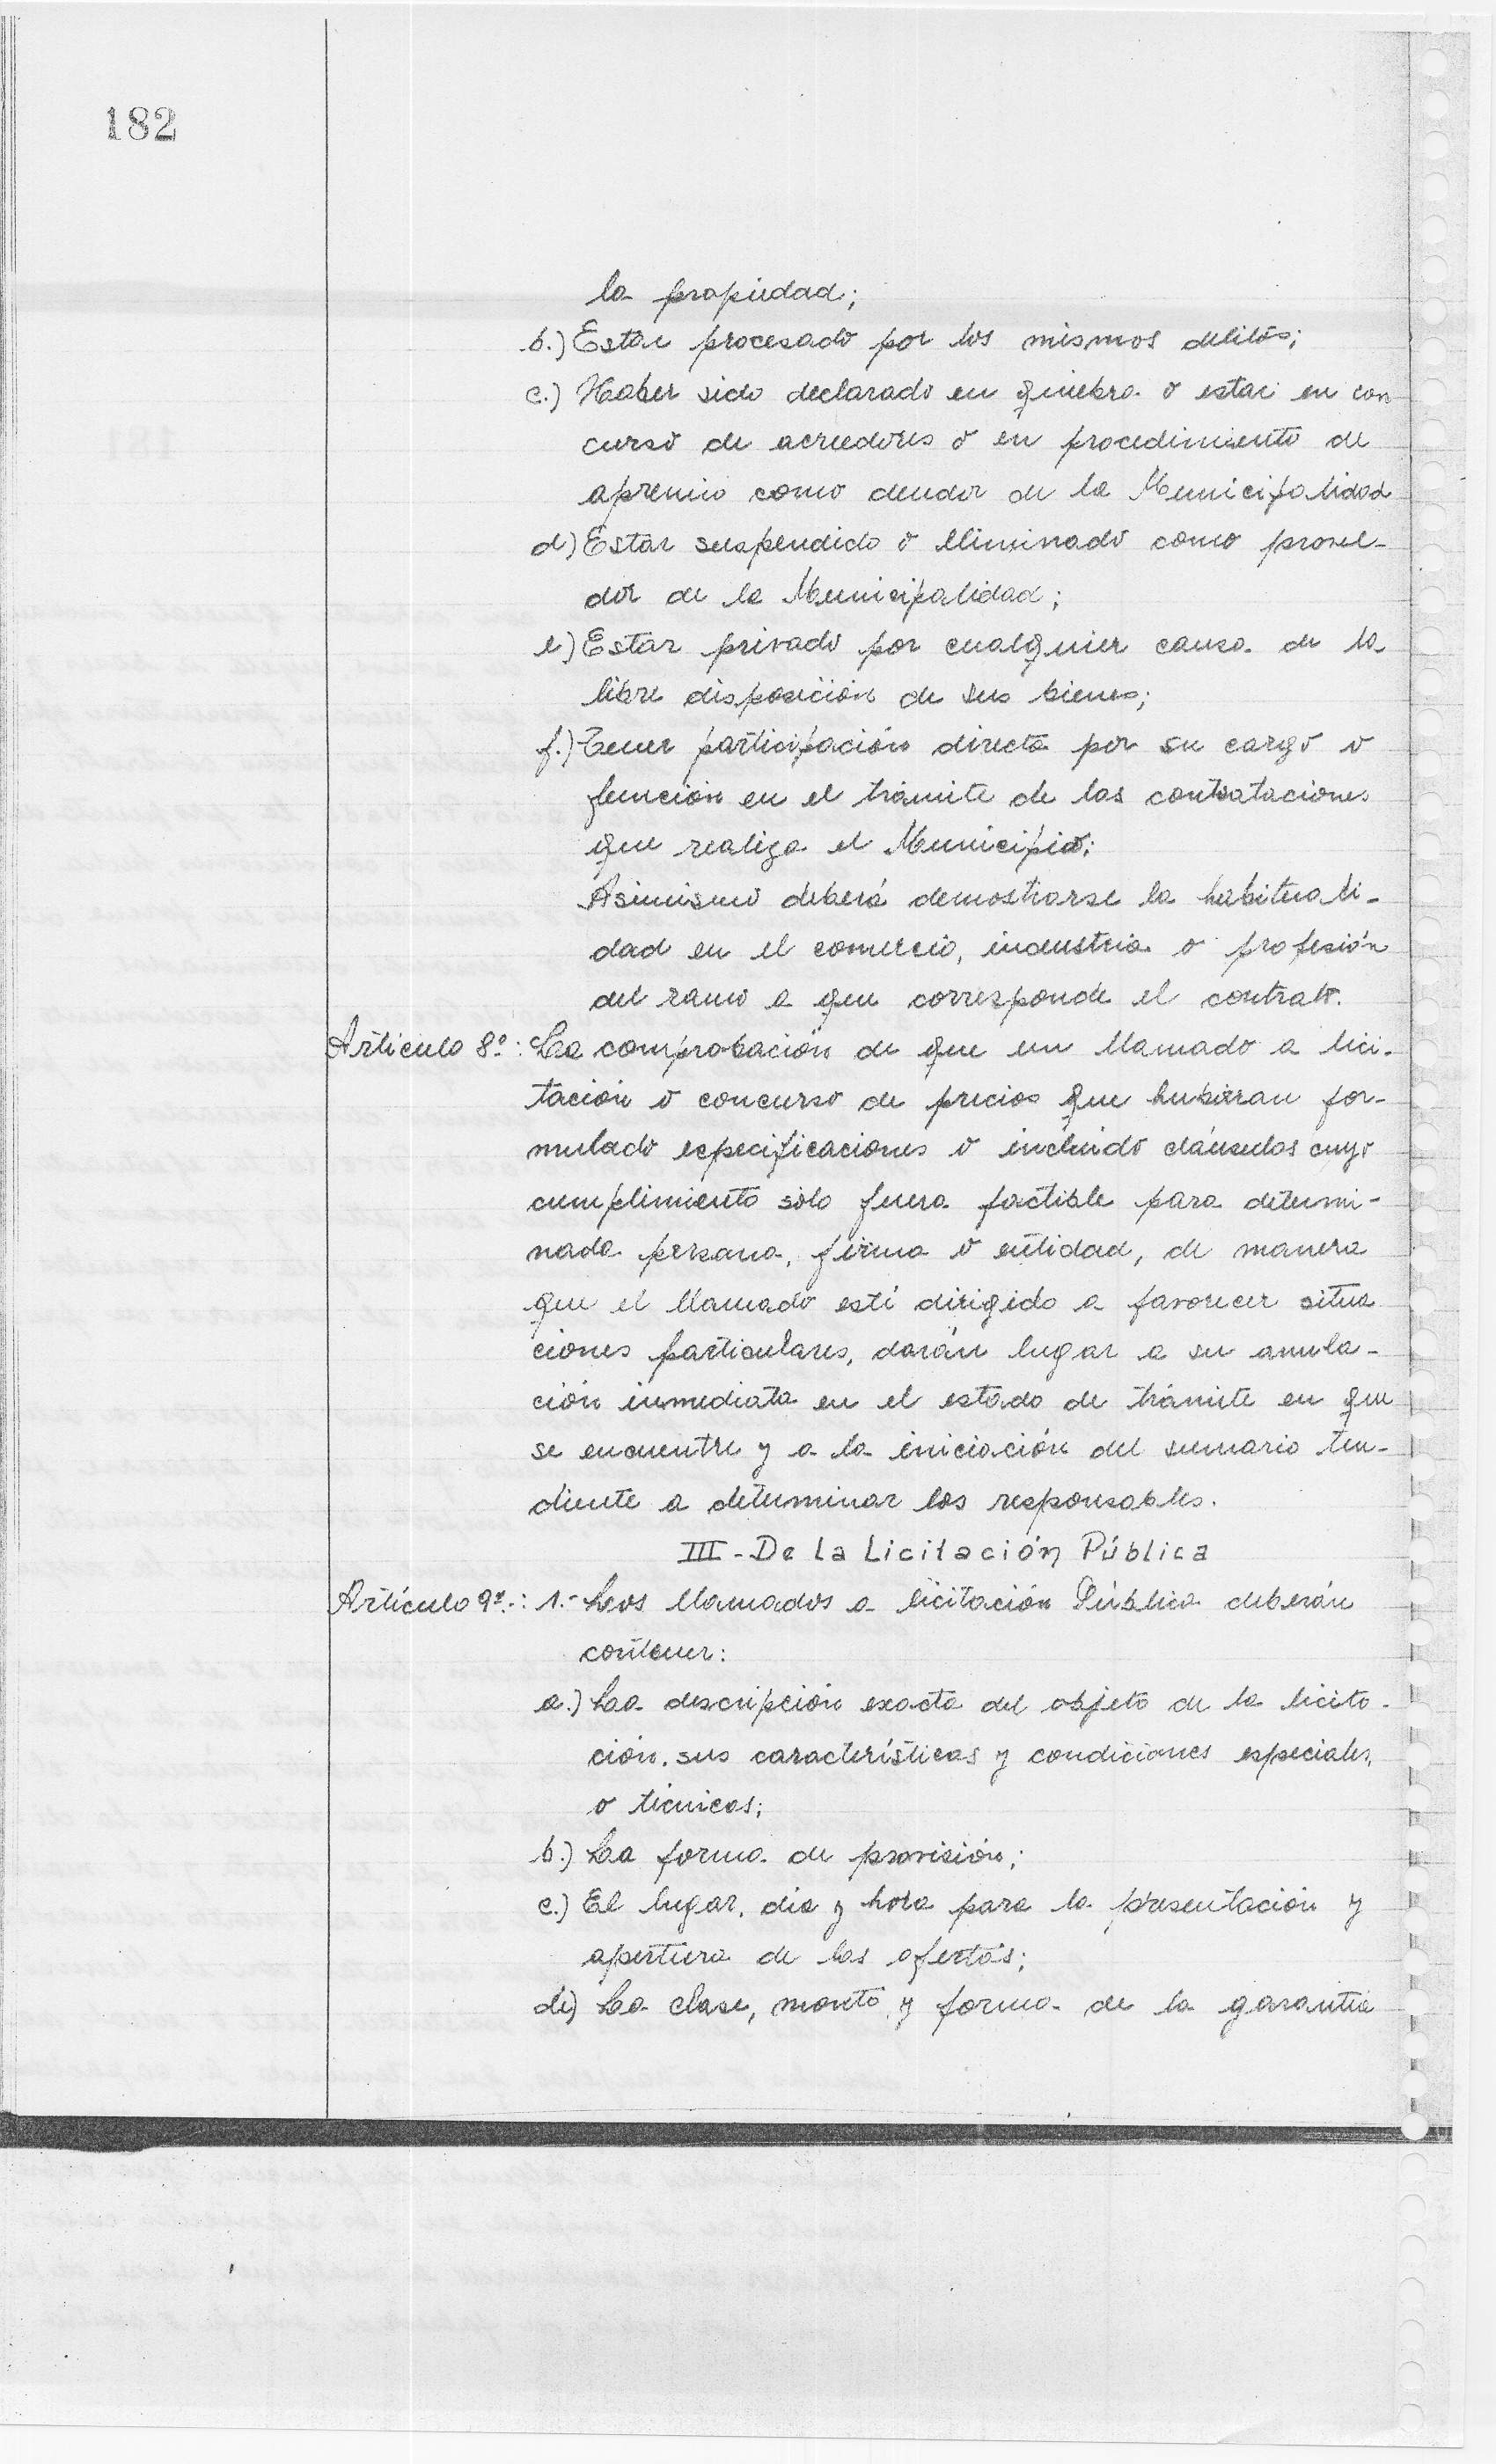 182
la propiedad;
b.) Estar procesado por los mismos delitos;
c.) Haber sido declarado en quiebra o estar en con
curso de acreedores o en procedimiento de
apremio como deudor de la Municipalidad
d) Estar suspendido o eliminado como provee-
dor de la Municipalidad;
e) Estar privado por cualquier causa de la
libre disposición de sus bienes;
f.) Tener participación directa por su cargo o
función en el trámite de las contrataciones
que realiza el Municipio;
Asimismo deberá demostrarse la habituali-
dad en el comercio, industria o profesión
del ramo a que corresponde el contrato.
Artículo 8º: La comprobación de que un llamado a lici-
tación o concurso de precios que hubieran for-
mulado especificaciones o incluído cláusulas cuyo
cumplimiento sólo fuera factible para determi-
nada persona, firma o entidad, de manera
que el llamado esté dirigido a favorecer situa
ciones particulares, darán lugar a su anula-
ción inmediata en el estado de trámite en que
se encuentre y a la iniciación del sumario ten-
diente a determinar los responsables.
III - De la Licitación Pública
Artículo 9º.-: 1.- Los llamados a licitación Pública deberán
contener:
a.) La descripción exacta del objeto de la licita-
ción, sus características y condiciones especiales,
o técnicas;
b.) La forma de provisión;
c.) El lugar, día y hora para la presentación y
apertura de las ofertas;
d) La clase, monto y forma de la garantía